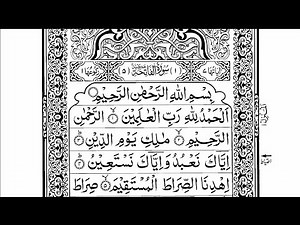 سُوْرَةُ الْفَاتِحَةِ
بِسْمِ اللّٰهِ الرَّحْمٰنِ الرَّحِيْمِ
اَلْحَمْدُ لِلّٰهِ رَبِّ الْعٰلَمِيْنَ ۙ﴿۱﴾ الرَّحْمٰنِ
الرَّحِيْمِ ۙ﴿۲﴾ مٰلِكِ يَوْمِ الدِّيْنِ ؕ﴿۳﴾
اِيَّاكَ نَعْبُدُ وَ اِيَّاكَ نَسْتَعِيْنُ ؕ﴿۴﴾
اِهْدِنَا الصِّرَاطَ الْمُسْتَقِيْمَ ۙ﴿۵﴾ صِرَاطَ